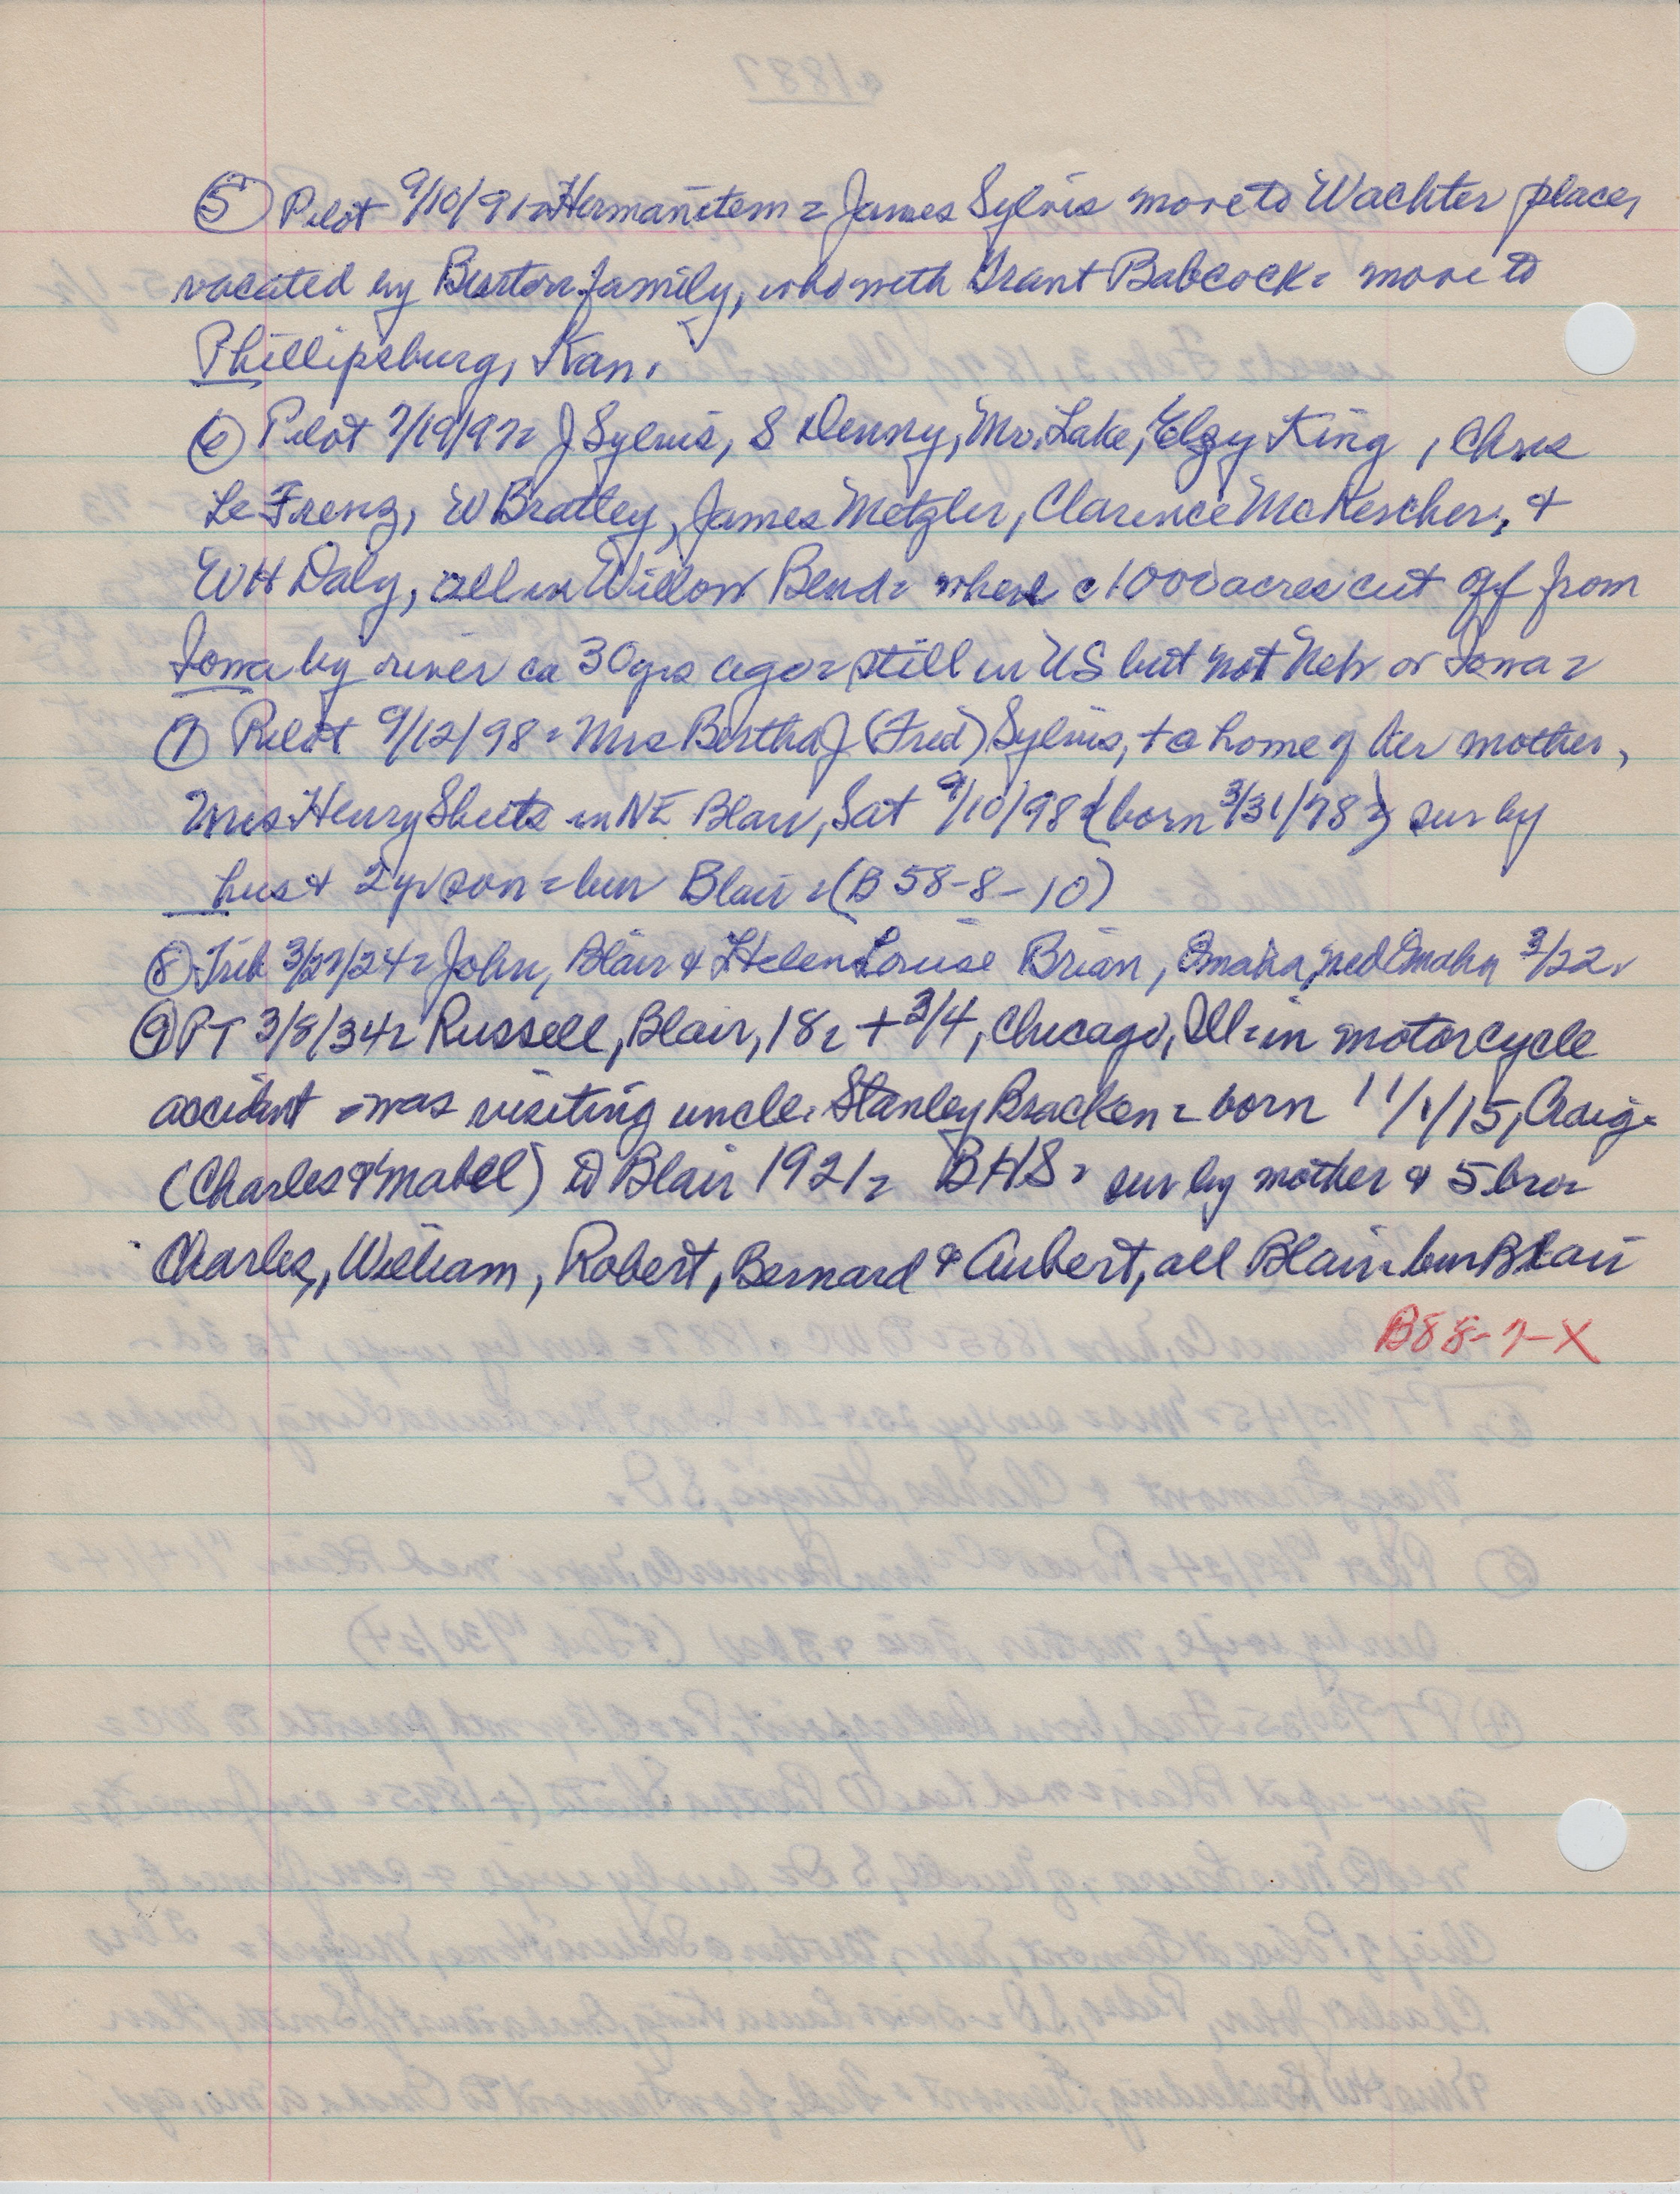 ⑤ Pilot 9/10/91= Herman item = James Sylvis move to Wachter place,
vacated by Burton family, who with Grant Babcock = move to
Phillipsburg, Kan.
⑥ Pilot 7/19/97= J Sylvis, S Denny, Mr. Lake, Elzy King, Chris
Le Frenz, W Bratley, James Metzler, Clarence McKercher, &
WH Daly, all in Willow Bend = where c 1000 acres cut off from
Iowa by river ca 30 yrs ago = still in US but not Neb or Iowa =
⑦ Pilot 9/12/98 = Mrs Bertha J (Fred) Sylvis, + @ home of her mother,
Mrs Henry Sheets in NE Blair, Sat 9/10/98 = (born 3/31/78 =) sur by
hus & 2 yr son = bur Blair = (B 58-8-10)
⑧ Trib 3/27/24 = John, Blair & Helen Louise Brian, Omaha, med Omaha 3/22.
⑨ PT 3/8/34= Russell, Blair, 18 = + 3/4, Chicago, Ill = in motorcycle
accident = was visiting uncle. Stanley Bracken = born 11/1/15, Craig =
(Charles & Mabel) to Blair 1921 = BHS = sur by mother & 5 bro =
Charles, William, Robert, Bernard & Aubert, all Blair = bur Blair
B88-7-X